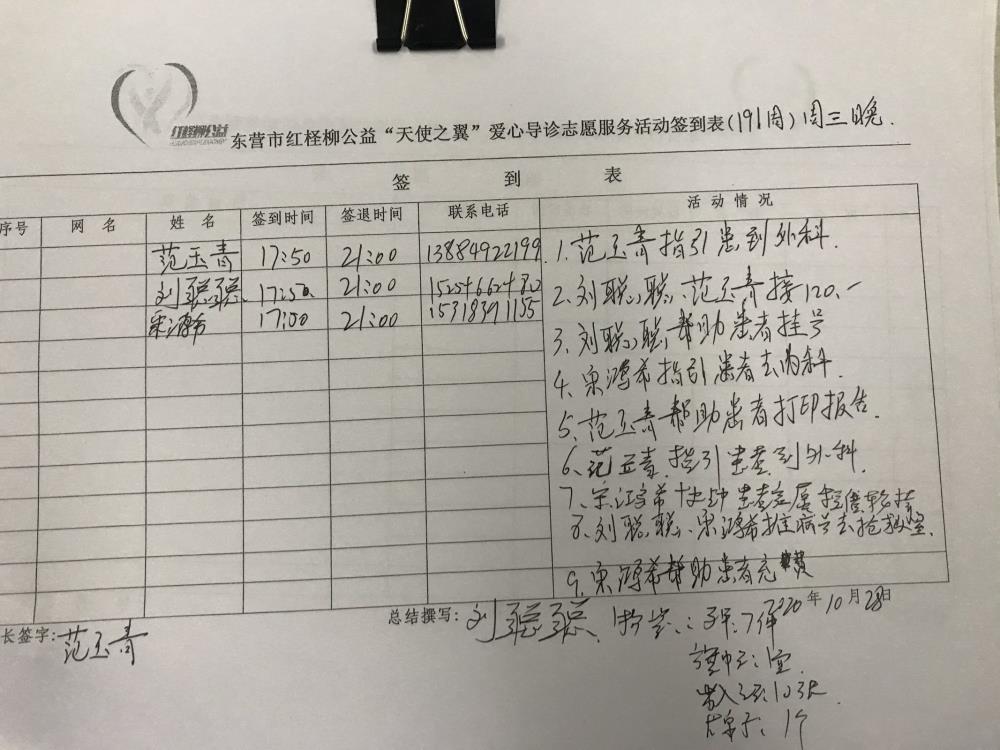 红柽柳公益
东营市红柽柳公益“天使之翼”爱心导诊志愿服务活动签到表(191周)周三晚.
签 到 表
序号 网 名 姓 名 签到时间 签退时间 联系电话 活动情况
范玉青 17:50 21:00 13884922199
刘聪聪 17:50 21:00
宋鸿希 17:00 21:00 15318391155
1.范玉青指引患到外科.
2.刘聪聪、范玉青接120.
3.刘聪聪帮助患者挂号
4.宋鸿希指引患者去内科.
5.范玉青帮助患者打印报告.
6.范玉青指引患者到外科.
7.宋鸿希 患者家属
8.刘聪聪、宋鸿希推病号去抢救室.
9.宋鸿希帮助患者充费
长签字:范玉青
总结撰写:刘聪聪
2020年10月28日